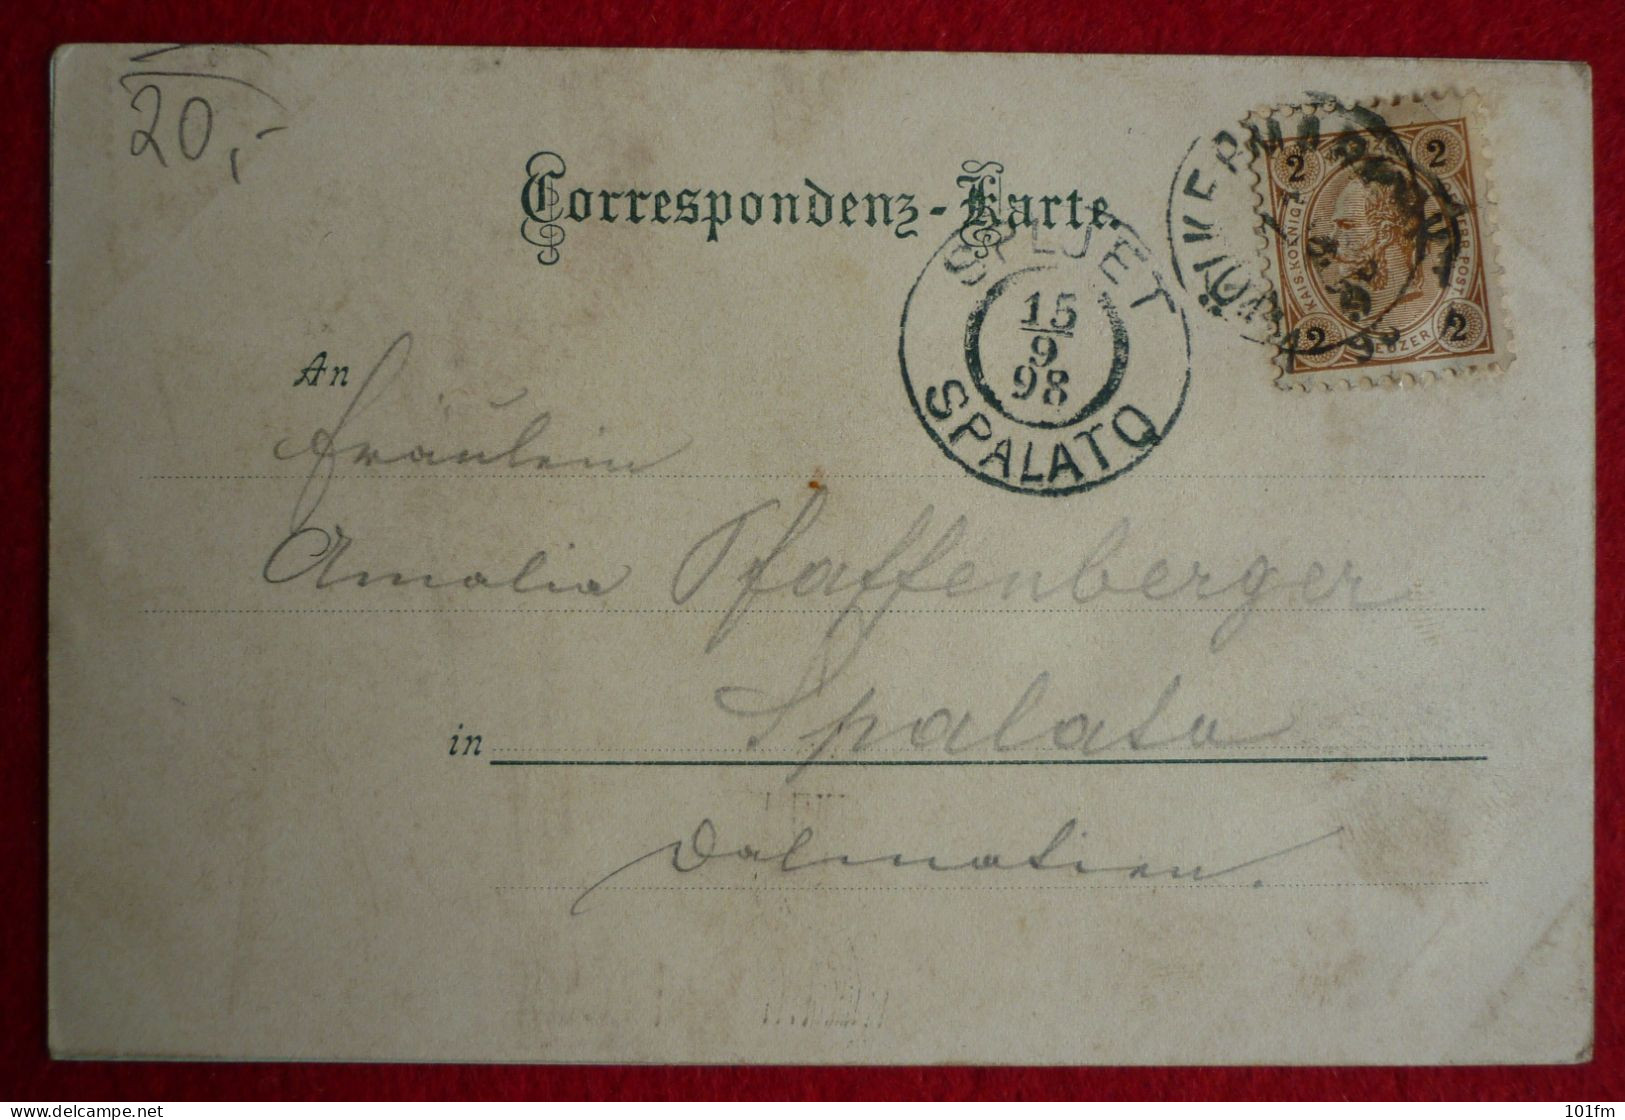 20,-
Correspondenz-Karte.
SPLJET
15
9
98
SPALATO
2 2
KAIS. KOENIGL. OESTERR. POST
2 KREUZER 2
An
Fräulein
Amalia Pfaffenberger
in Spalato
Dalmatien.
101fm